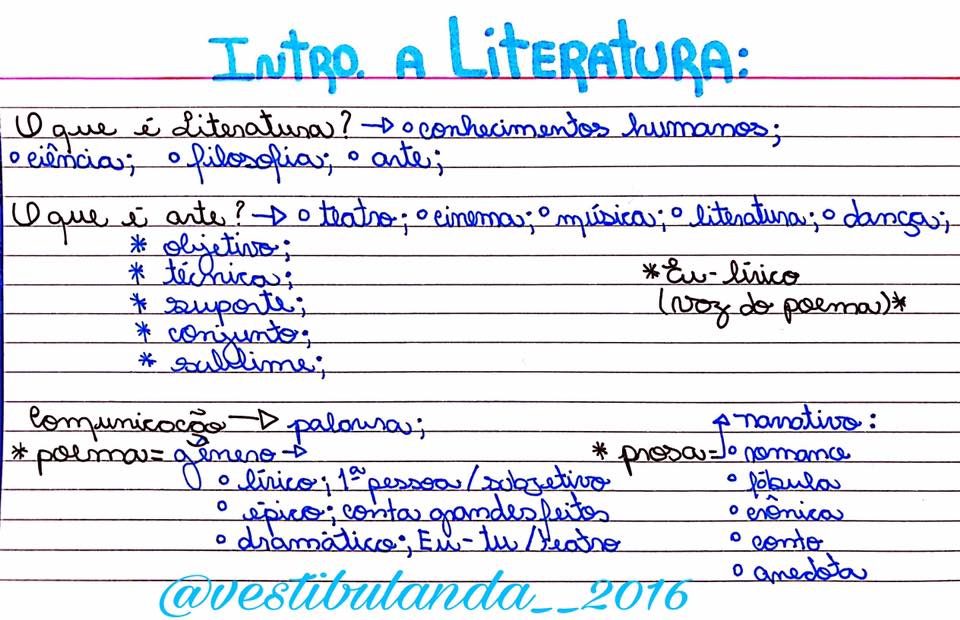 INTRO. A LITERATURA:
O que é Literatura? → o conhecimentos humanos;
o ciência; o filosofia; o arte;
O que é arte? → o teatro; o cinema; o música; o literatura; o dança;
* objetivo;
* técnica;
* suporte;
* conjunto;
* sublime;
*Eu-lírico
(voz do poema)*
Comunicação → palavra;
* poema = gênero →
o lírico; 1ª pessoa / subjetivo
o épico; conta grandes feitos
o dramático; Eu-tu / teatro
* prosa = narrativo:
o romance
o fábula
o crônica
o conto
o anedota
@vestibulanda__2016